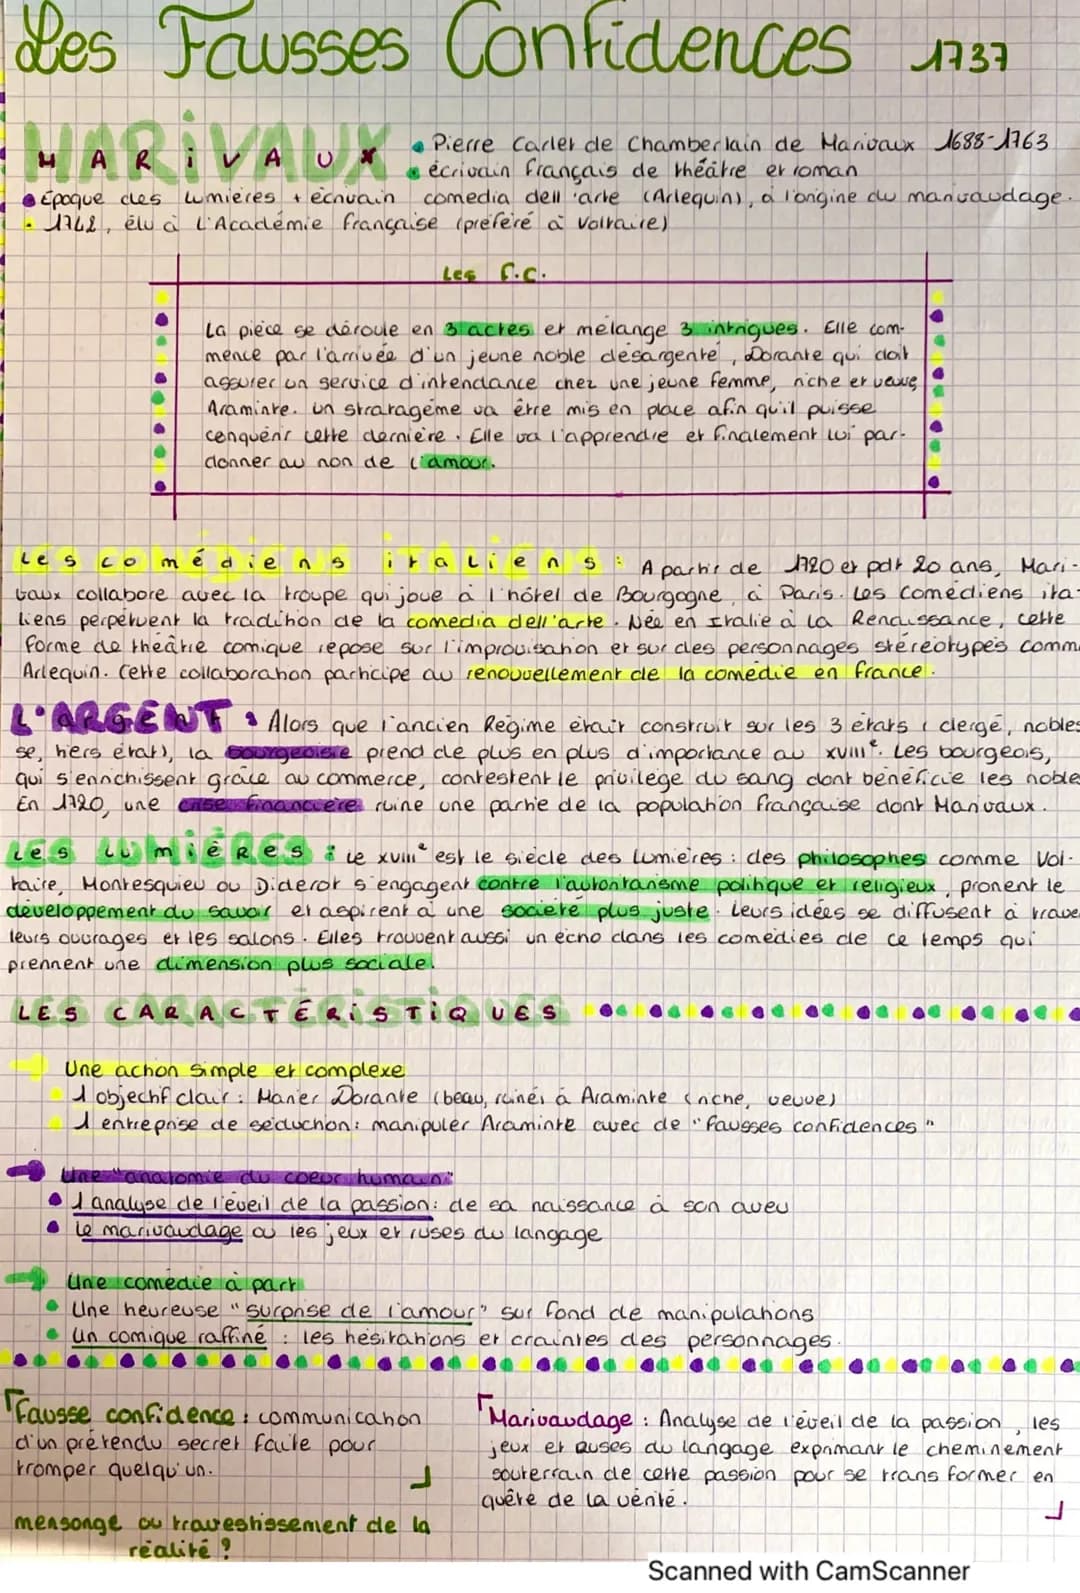 Les Fausses Confidences 1737
MARIVAUX
Pierre Carlet de Chamberlain de Marivaux 1688-1763
écrivain français de théâtre et roman
Époque des Lumières + écrivain comedia dell'arte (Arlequin), à l'origine du marivaudage.
1742, élu à L'Académie française (préféré à Voltaire)
Les F.C.
La pièce se déroule en 3 actes et mélange 3 intrigues. Elle com-
mence par l'arrivée d'un jeune noble désargenté, Dorante qui doit
assurer un service d'intendance chez une jeune femme, riche et veuve,
Araminte. Un stratagème va être mis en place afin qu'il puisse
conquérir cette dernière. Elle va l'apprendre et finalement lui par-
donner au non de l'amour.
Les comédiens italiens : A partir de 1720 et pdt 20 ans, Mari-
vaux collabore avec la troupe qui joue à l'hôtel de Bourgogne, à Paris. Les comédiens ita-
liens perpétuent la tradition de la comedia dell'arte. Née en Italie à la Renaissance, cette
forme de théâtre comique repose sur l'improvisation et sur des personnages stéréotypés comm
Arlequin. Cette collaboration participe au renouvellement de la comédie en france.
L'ARGENT : Alors que l'ancien Régime était construit sur les 3 états (clergé, nobles
se, tiers état), la bourgeoisie prend de plus en plus d'importance au XVIIIe. Les bourgeois,
qui s'enrichissent grâce au commerce, contestent le privilège du sang dont bénéficie les noble
En 1720, une crise financière ruine une partie de la population française dont Marivaux.
Les LUMIÈRES : Le XVIIIe est le siècle des Lumières : des philosophes comme Vol-
taire, Montesquieu ou Diderot s'engagent contre l'autoritarisme politique et religieux, pronent le
développement du savoir et aspirent à une société plus juste. Leurs idées se diffusent à trave
leurs ouvrages et les salons. Elles trouvent aussi un écho dans les comédies de ce temps qui
prennent une dimension plus sociale.
LES CARACTÉRISTIQUES
Une action simple et complexe
1 objectif clair : Marier Dorante (beau, ruiné) à Araminte (riche, veuve)
1 entreprise de séduction : manipuler Araminte avec de "fausses confidences"
Une "anatomie du coeur humain"
1 analyse de l'éveil de la passion : de sa naissance à son aveu
Le marivaudage ou les jeux et ruses du langage
Une comédie à part
Une heureuse "surprise de l'amour" sur fond de manipulations
Un comique raffiné : les hésitations et craintes des personnages.
Fausse confidence : communication
d'un prétendu secret faite pour
tromper quelqu'un.
mensonge ou travestissement de la
réalité ?
Marivaudage : Analyse de l'éveil de la passion, les
jeux et ruses du langage exprimant le cheminement
souterrain de cette passion pour se transformer en
quête de la vérité.
Scanned with CamScanner